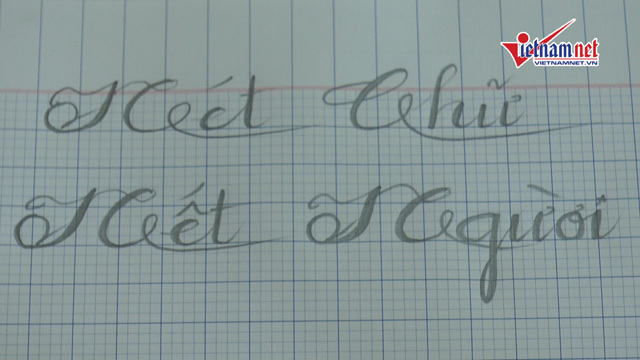 Vietnamnet
VIETNAMNET.VN
Nét Chữ
Nết Người